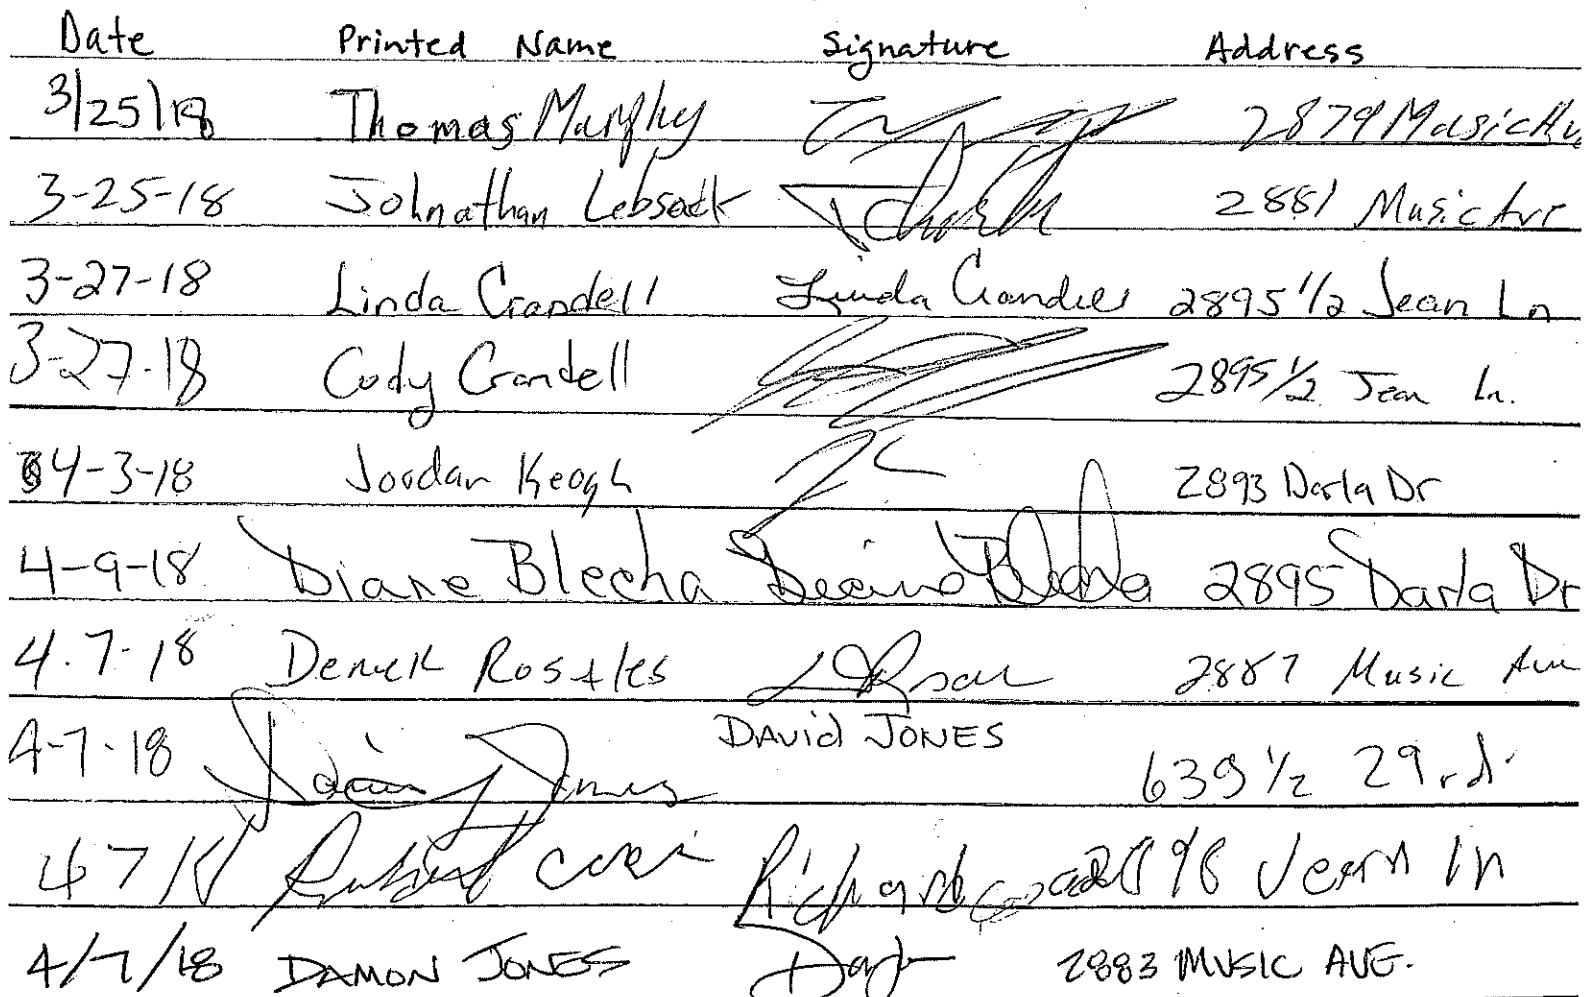 Date Printed Name Signature Address
3/25/18 Thomas Murphy 2879 Music Av.
3-25-18 Johnathan Lebsack 2881 Music Ave
3-27-18 Linda Crandell Linda Crandell 2895 1/2 Jean Ln
3-27-18 Cody Crandell 2895 1/2 Jean Ln.
4-3-18 Jordan Keogh 2893 Darla Dr
4-9-18 Diane Blecha Diane Blecha 2895 Darla Dr
4.7-18 Derrek Rosales 2887 Music Ave
4-7-18 David Jones DAVid JONES 639 1/2 29 rd.
4 7 18 Richard 2898 Jean ln
4/7/18 DAMON JONES 2883 MUSIC AVE.